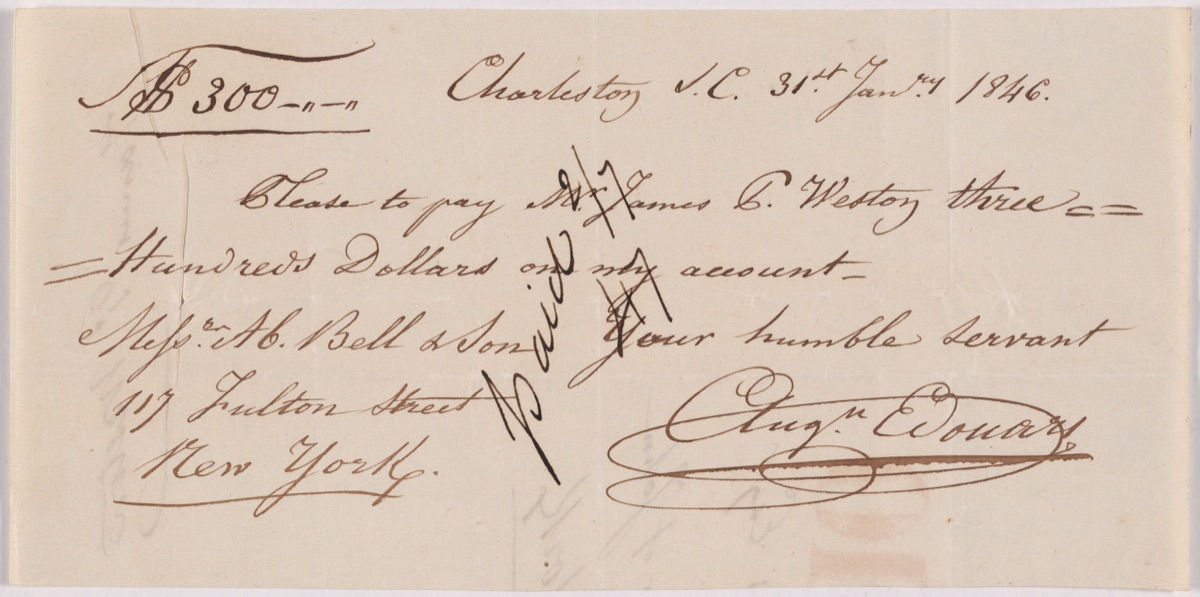 $ 300-"-"
Charleston S.C. 31st Janry 1846.
Please to pay Mr James P. Weston three ==
= Hundreds Dollars on my account-
Messrs A. Bell & Son Your humble servant
117 Fulton Street
New York.
Augn Edouart
paid 2/7
47